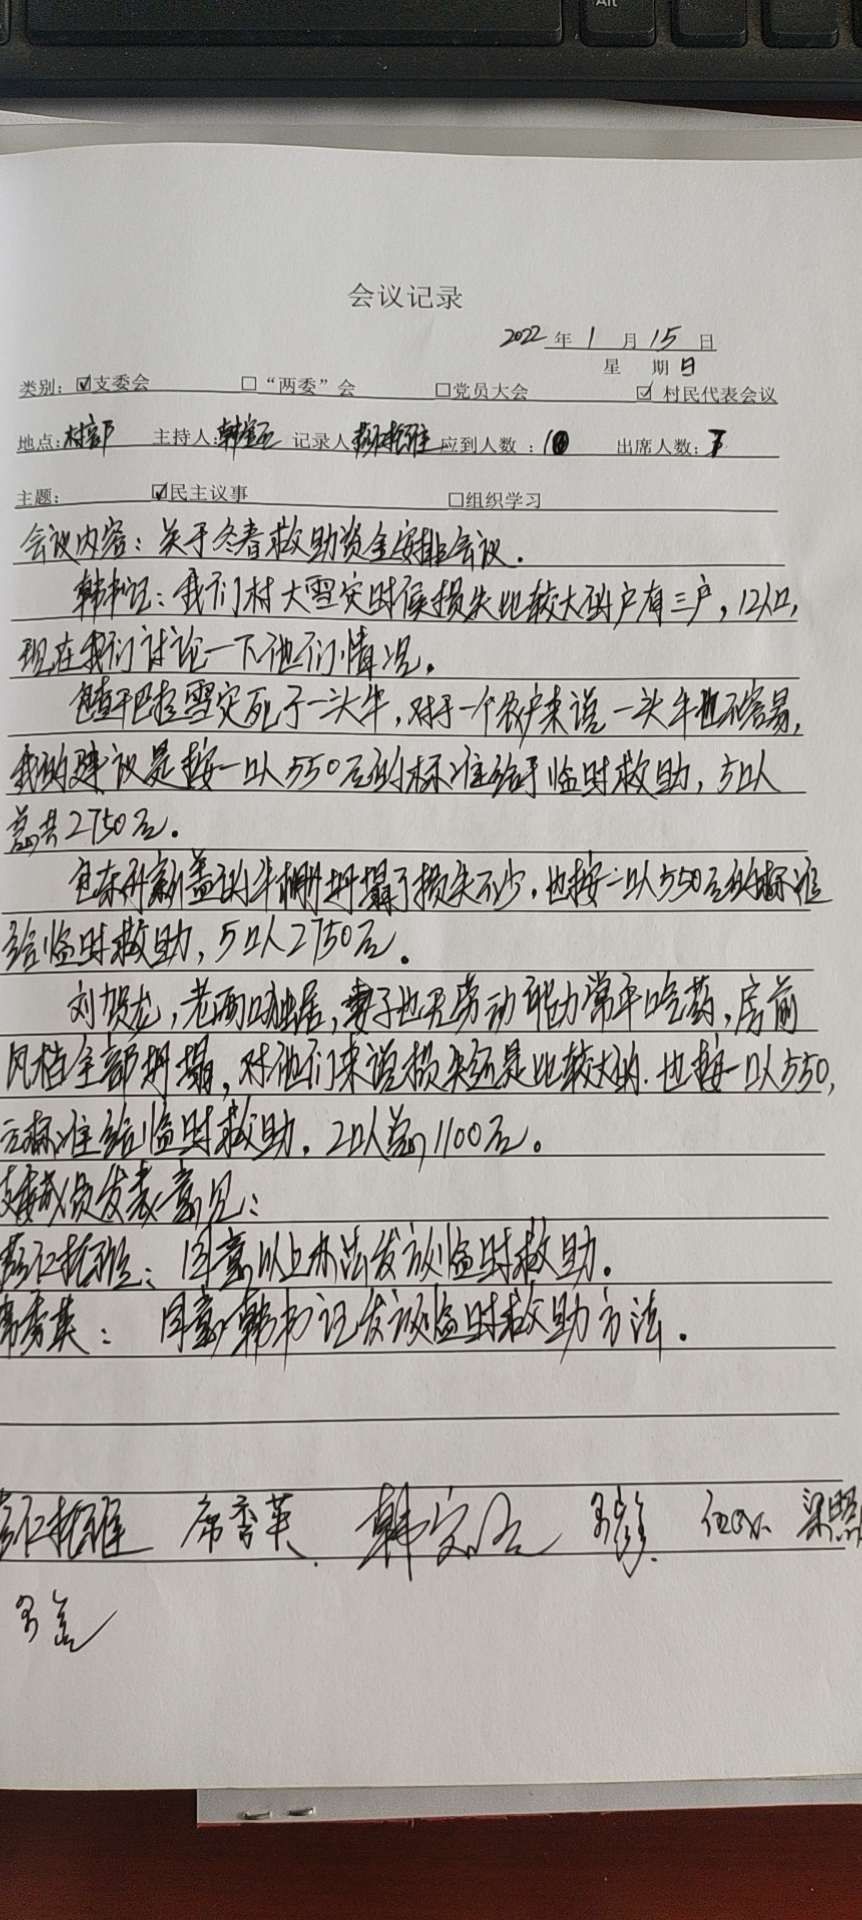 Alt
会议记录
2022年1月15日
星期日
类别: ☑支委会 □“两委”会 □党员大会 ☑村民代表会议
地点:村部 主持人: 记录人 应到人数: 出席人数:7
主题: ☑民主议事 □组织学习
会议内容:关于冬春救助资金安排会议.
韩书记:我们村大雪灾时候损失比较大的户有三户,12人口,
现在我们讨论一下他们情况.
雪灾死了一头牛,对于一个农户来说一头牛也不容易,
我的建议是按一口人550元的标准给予临时救助,5口人
总共2750元.
新盖的牛棚坍塌了损失不少,也按一口人550元的标准
给临时救助,5口人2750元.
刘贺龙,老两口独居,妻子也无劳动能力常年吃药,房前
风档全部坍塌,对他们来说损失还是比较大的.也按一口人550,
元标准给临时救助.2口人总1100元.
支委成员发表意见:
同意以上办法发放临时救助.
席秀英: 同意韩书记发放临时救助方法.
席秀英